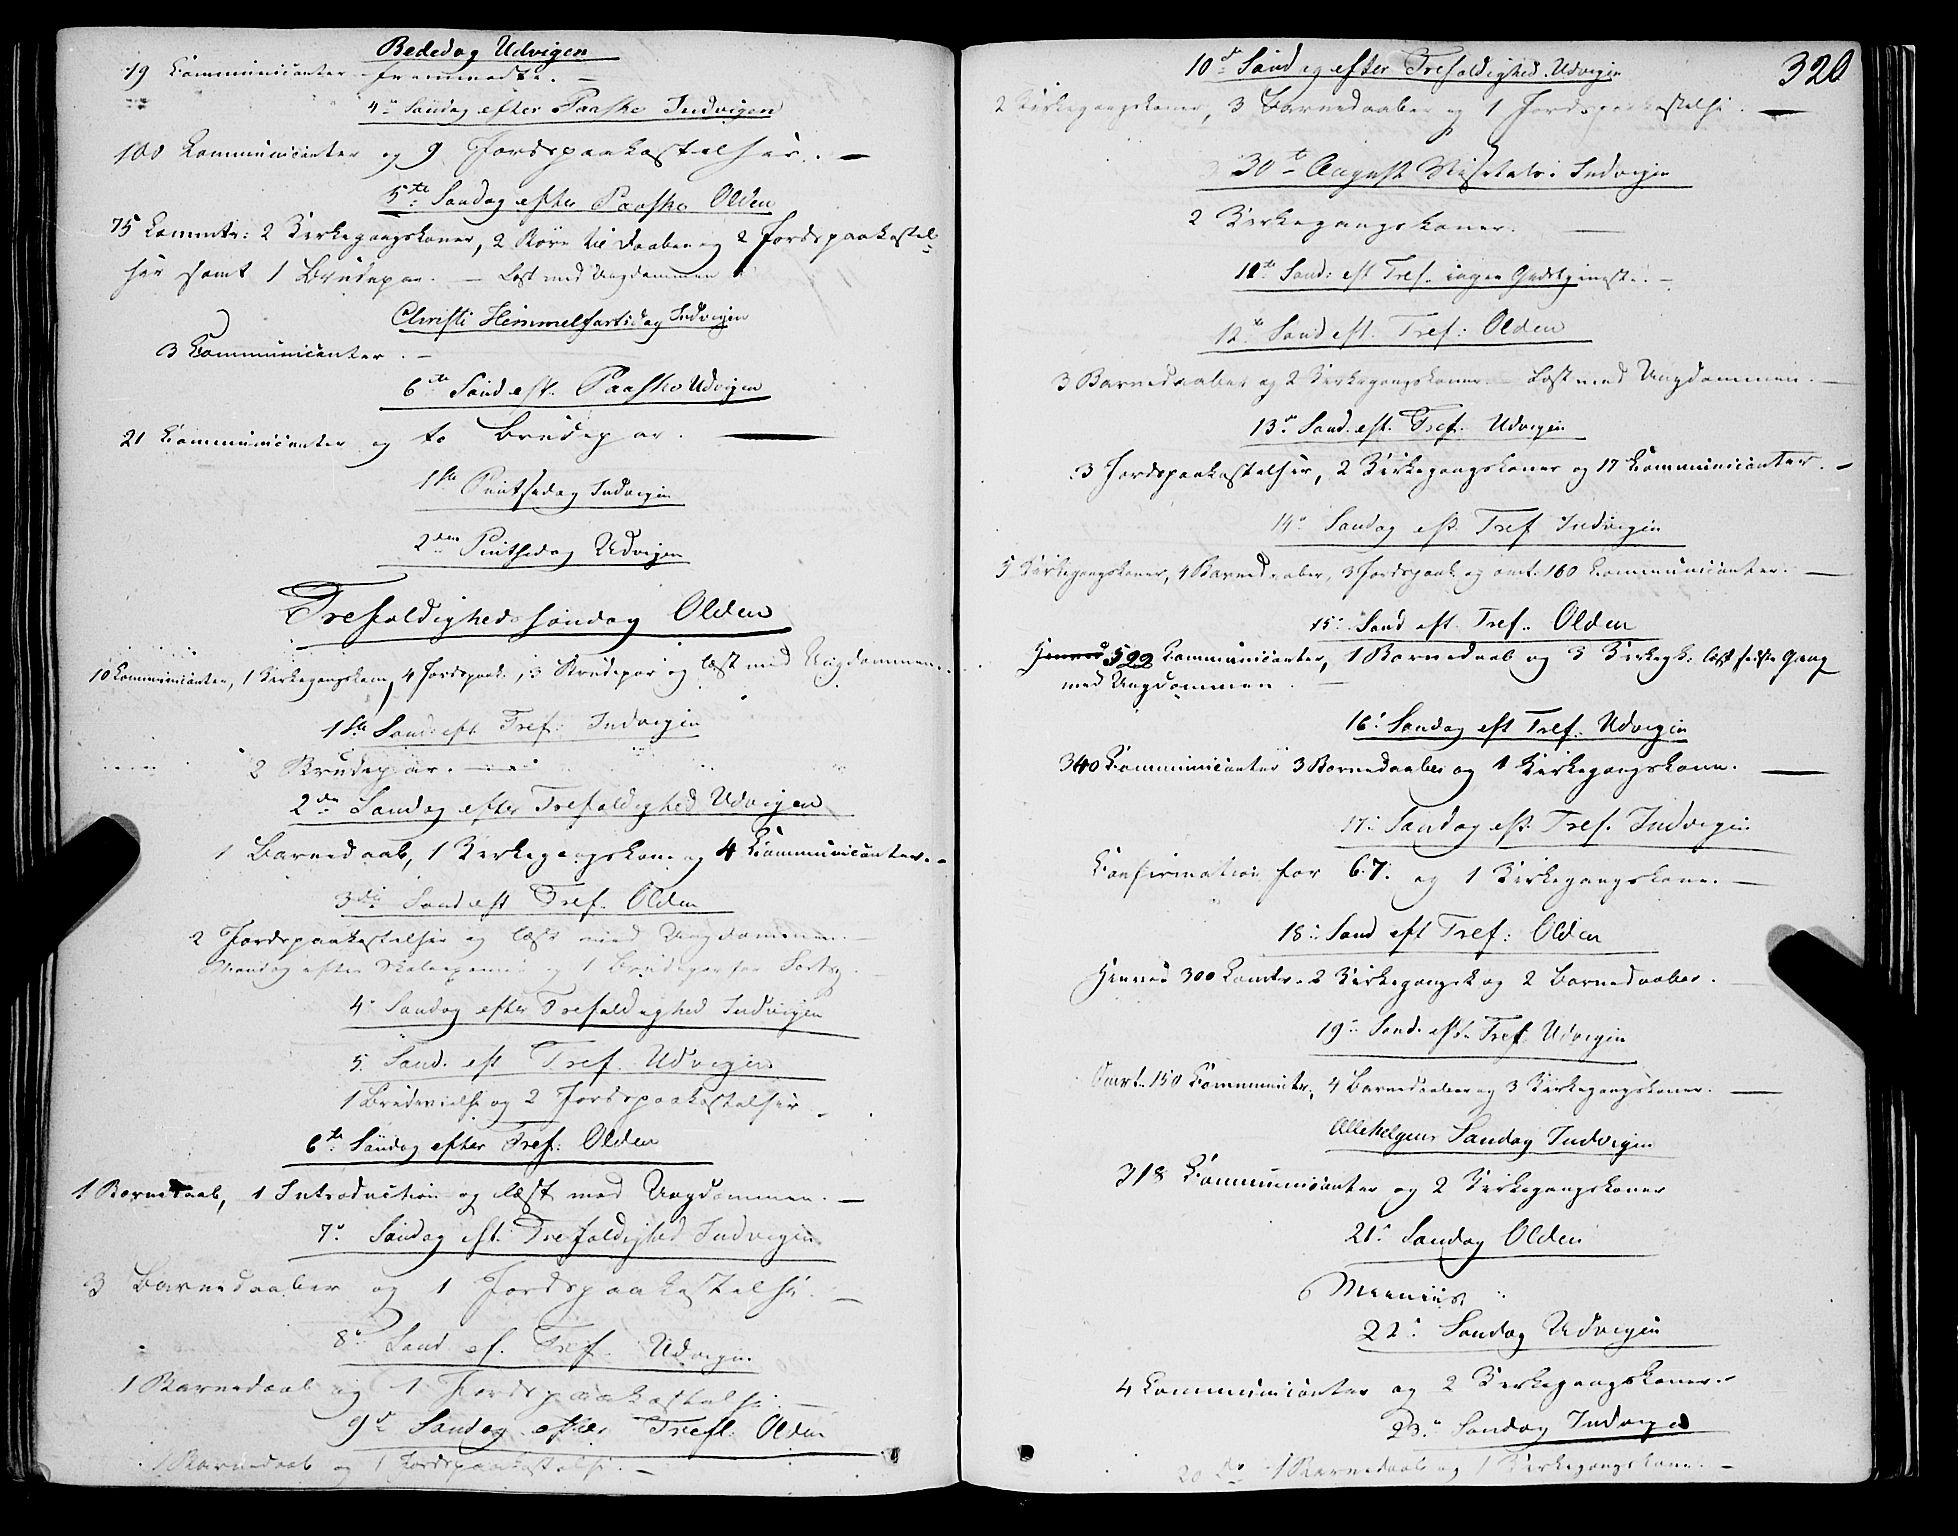 Bededag Udvigen
19 Communicanter fremmødte. –
4de Søndag efter Paaske Indvigen
100 Communicanter og 9 Jordspaakastelser. –
5te Søndag efter Paaske Olden
75 Commtr: 2 Kirkegangskoner, 2 Børn til Daaben og 2 Jordspaakastel-
ser samt 1 Brudepar. – Læst med Ungdommen
Christi Himmelfartsdag Indvigen
3 Communicanter. –
6te Sønd eft. Paaske Udvigen
21 Communicanter og to Brudepar. –
1ste Pintsedag Indvigen
2den Pintsedag Udvigen
Trefoldighedssøndag Olden
10 Communicanter, 1 Kirkegangskone, 4 Jordspaak., 3 Brudepar og læst med Ungdommen.
1ste Sønd. eft Tref: Indvigen
2 Brudepar. –
2den Søndag efter Trefoldighed Udvigen
1 Barnedaab, 1 Kirkegangskone og 4 Communicanter. –
3die Sønd eft Tref. Olden
2 Jordspaakastelser og læst med Ungdommen.
Mandag efter og 1 Brudepar
4 Søndag efter Trefoldighed Indvigen
5 Sønd. eft Tref. Udvigen
1 Brudevielse og 2 Jordspaakastelser –
6te Søndag efter Tref: Olden
1 Barnedaab, 1 Introduction og læst med Ungdommen. –
7de Søndag eft. Trefoldighed Indvigen
3 Barnedaaber og 1 Jordspaakastelse. –
8de Sønd ef. Tref. Udvigen
1 Barnedaab og 1 Jordspaakastelse. –
9de Søndag efter Tref: Olden
1 Barnedaab og 1 Jordspaakastelse. –
320
10de Søndag efter Trefoldighed Udvigen
2 Kirkegangskoner, 3 Barnedaaber og 1 Jordspaakastelse. –
30te August Indvigen
2 Kirkegangskoner. –
11te Sønd: eft Tref. ingen Gudstjeneste. –
12te Sønd eft. Tref: Olden
3 Barnedaaber og 2 Kirkegangskoner Læst med Ungdommen. –
13de Sønd. eft. Tref. Udvigen
3 Jordspaakastelser, 2 Kirkegangskoner og 17 Communicanter. –
14de Søndag eft Tref Indvigen
5 Kirkegangskoner, 4 Barnedaaber, 3 Jordspaak. og omt. 160 Communicanter. –
15de Sønd eft. Tref. Olden
Henved 522 Communicanter, 1 Barnedaab og 3 Kirkegk: læst sidste Gang
med Ungdommen. –
16de Søndag eft Tref. Udvigen
340 Communicanter 3 Barnedaaber og 1 Kirkegangskone. –
17de Søndag eft. Tref. Indvigen
Confirmation for 67. og 1 Kirkegangskone. –
18de Sønd eft Tref: Olden
Henved 300 Comtr. 2 Kirkegangsk og 2 Barnedaaber. –
19de Sønd. eft. Tref. Udvigen
Omt. 150 Communtr, 4 Barnedaaber og 3 Kirkegangskoner. –
Allehelgens Søndag Indvigen
318 Communicanter og 2 Kirkegangskoner
21de Søndag Olden
22de Søndag Udvigen
4 Communicanter og 2 Kirkegangskoner. –
23de Søndag Indvigen
20 1 Barnedaab og 1 Kirkegangskone. –